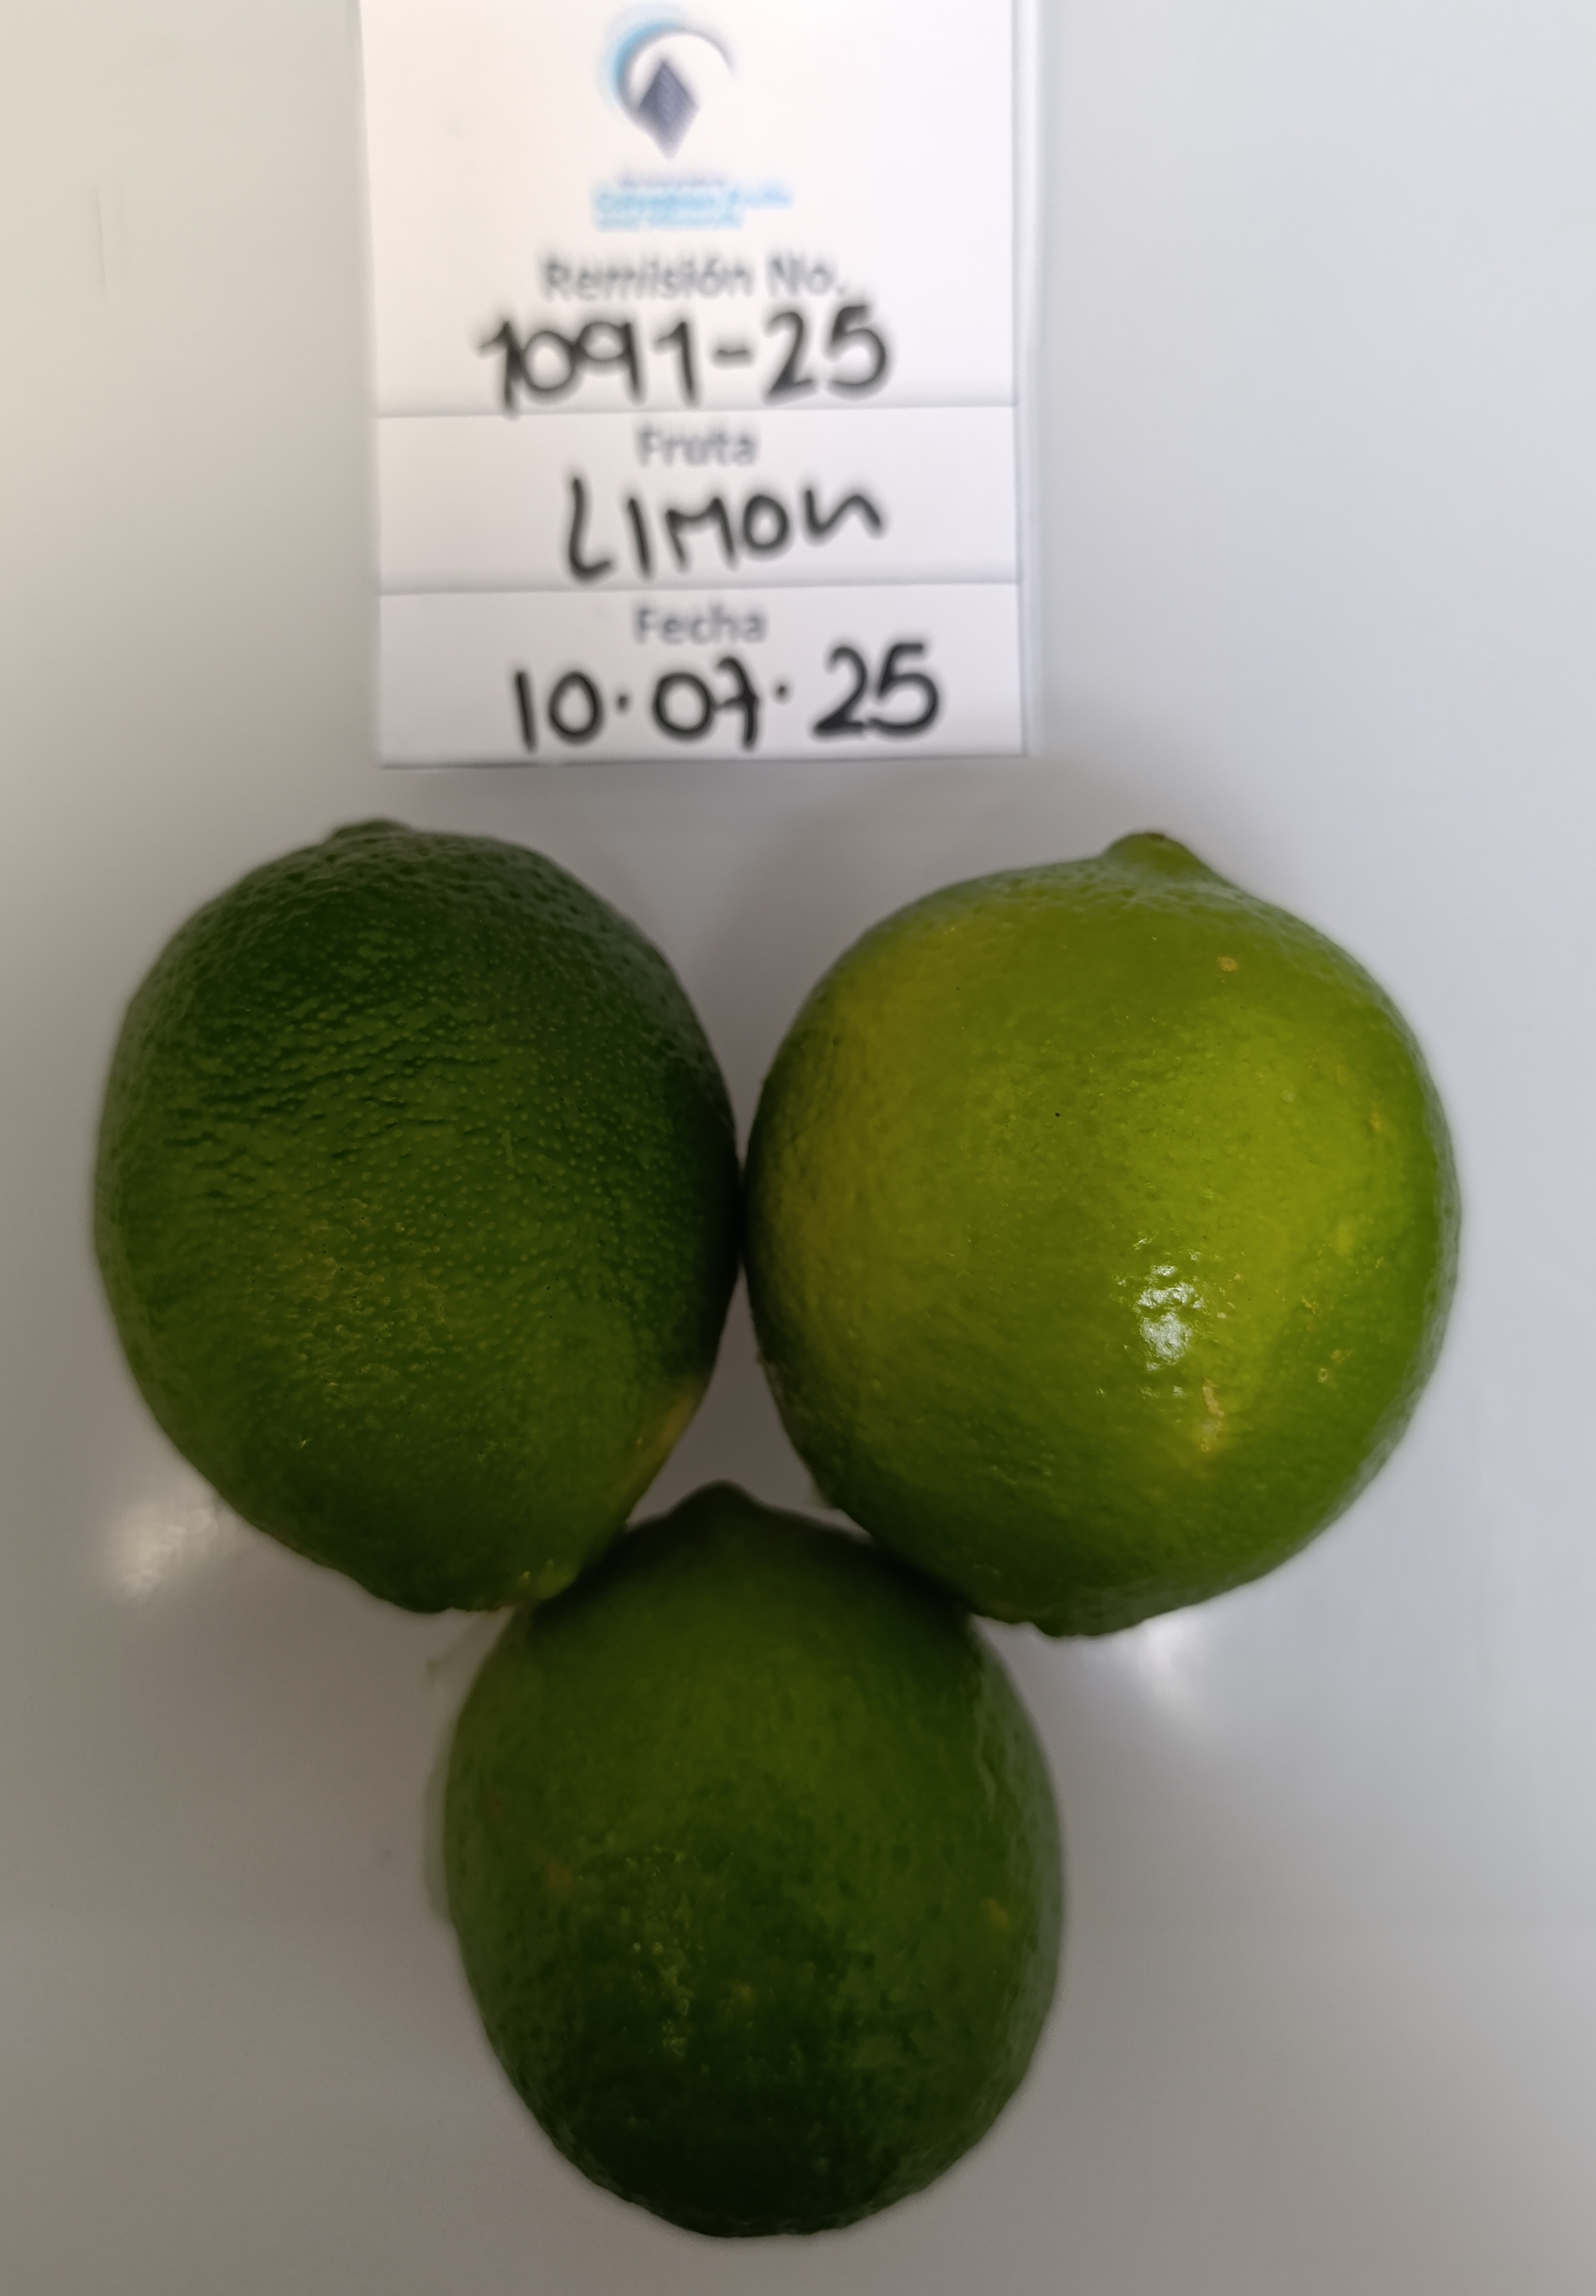 Remisión No.
1091-25
Fruta
LIMON
Fecha
10·07·25